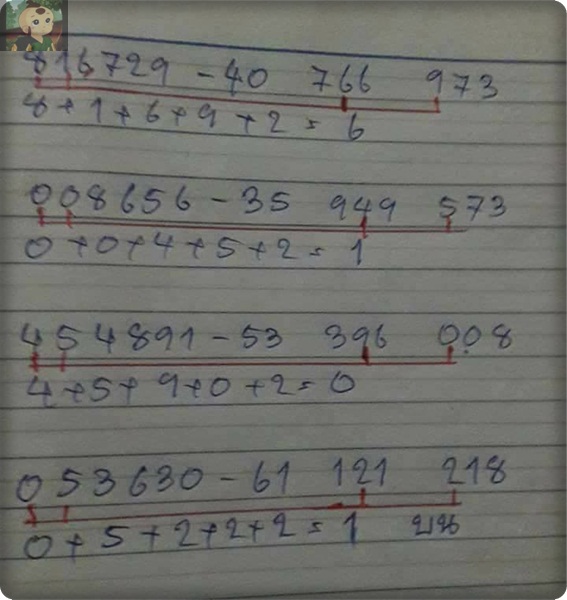 816729 - 40 766 973
8 + 1 + 6 + 9 + 2 = 6
008656 - 35 949 573
0 + 0 + 4 + 5 + 2 = 1
454891 - 53 396 008
4 + 5 + 9 + 0 + 2 = 0
053630 - 61 121 218
0 + 5 + 2 + 2 + 2 = 1